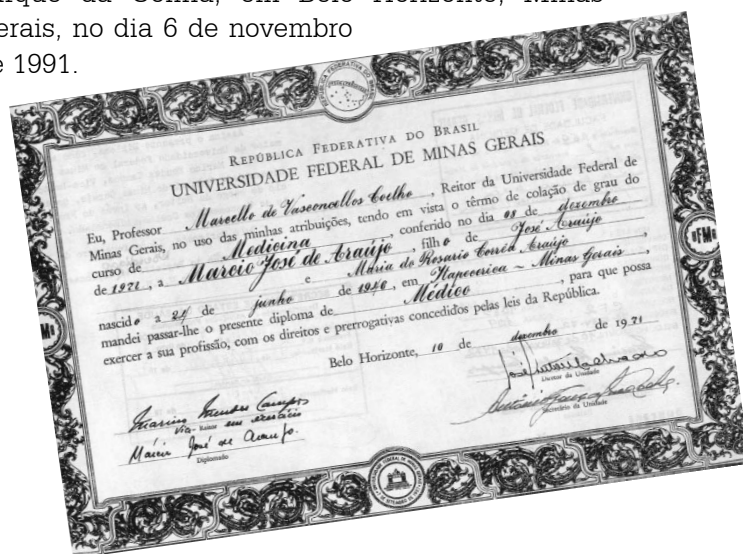 da Cunha, em Belo Horizonte, Minas
erais, no dia 6 de novembro
e 1991.
REPÚBLICA FEDERATIVA DO BRASIL
UNIVERSIDADE FEDERAL DE MINAS GERAIS
Eu, Professor Marcello de Vasconcellos Coelho, Reitor da Universidade Federal de
Minas Gerais, no uso das minhas atribuições, tendo em vista o têrmo de colação de grau do
curso de Medicina, conferido no dia 08 de dezembro
de 1971, a Marcio José de Araújo, filho de José Araújo
e Maria do Rosario Corrêa Araújo,
nascido a 24 de junho de 1946, em Itapecerica - Minas Gerais,
mandei passar-lhe o presente diploma de Médico, para que possa
exercer a sua profissão, com os direitos e prerrogativas concedidos pelas leis da República.
Belo Horizonte, 10 de dezembro de 1971
Diretor da Unidade
Secretário da Unidade
Mendes Campos
Vice-Reitor em exercício
Márcio José de Araujo.
Diplomado